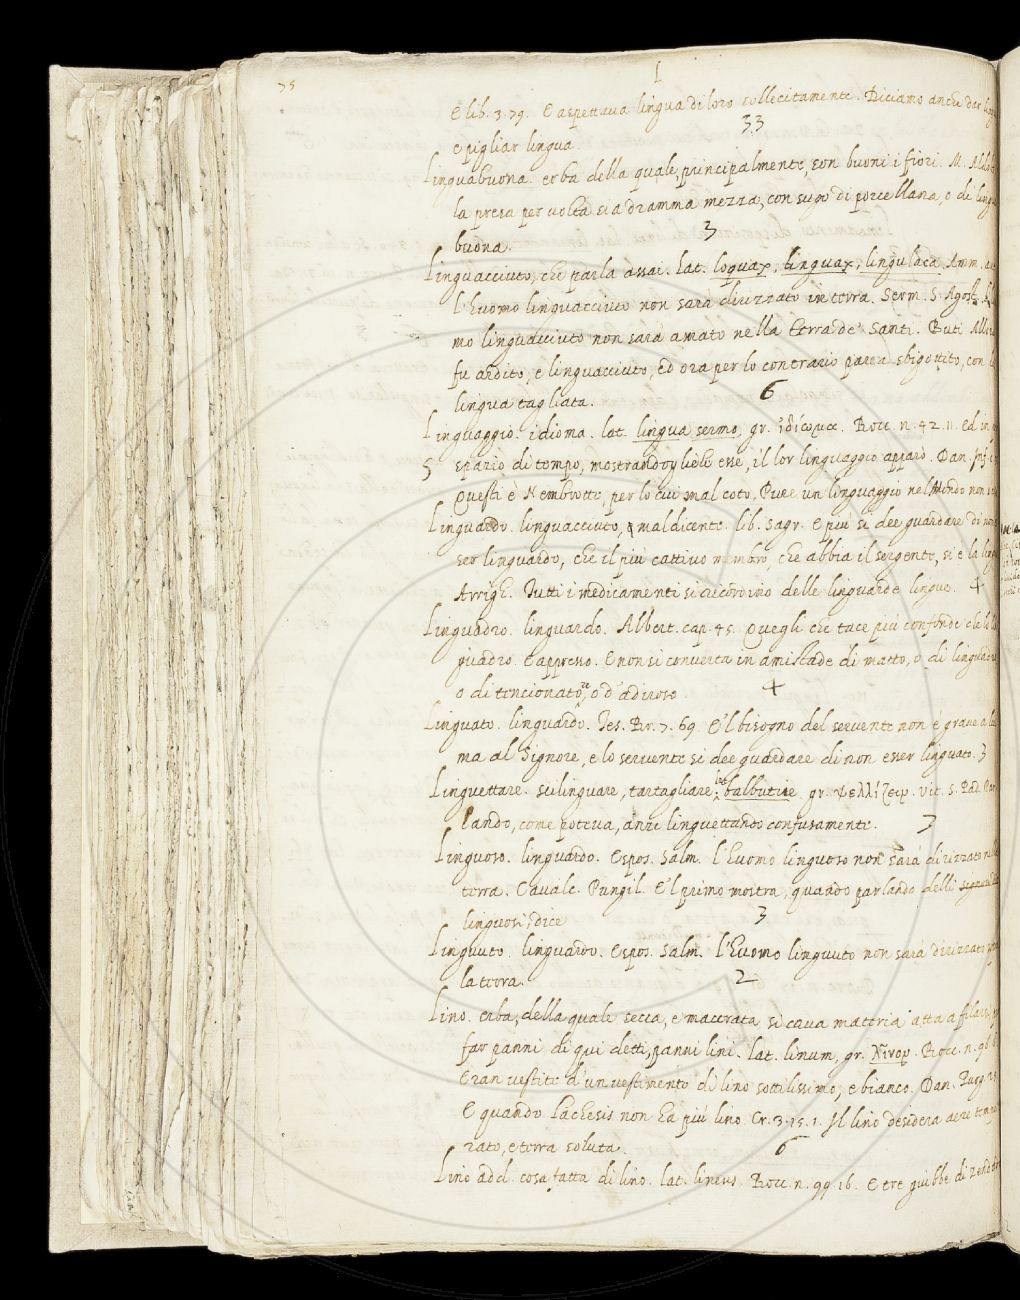 75
L
E lib. 3. 79. E aspettava lingua di loro sollecitamente. Diciamo anche dar
e pigliar lingua. 33
Linguabuona. erba della quale, principalmente, son buoni i fiori. M. Aldob
la presa per volta si a dramma mezza, con sugo di porcellana, o di lingua
buona. 3
Linguacciuto, che parla assai. lat. loquax, linguax, lingulaca. Amm.
l'huomo linguacciuto non sarà dirizzato in terra. Serm. S. Agost.
mo linguacciuto non sarà amato nella terra de' Santi. Buti
fu ardito, e linguacciuto, ed ora per lo contrario parea sbigottito, con
lingua tagliata. 6
Linguaggio. idioma. lat. lingua sermo, gr. ἰδίωμα. Bocc. n. 42. 11. Ed in
5 spazio di tempo, mostrandogliele esse, il lor linguaggio apparò. Dan. Inf.
Questi è Nembrotte, per lo cui mal coto, Pure un linguaggio nel Mondo non
Linguardo. linguacciuto, e maldicente. lib. Sagr. E più si dee guardare di non
ser linguardo, che il più cattivo membro, che abbia il sergente, si è la lingua
Arrigh. Tutti i medicamenti si accordino delle linguarde lingue. 4
Linguadro. linguardo. Albert. cap. 45. Quegli che tace più confonde che lo
guadro. E appresso. E non si converta in amistade di matto, o di linguadro
o di tencionatore, o d'adiroso. 4
Linguato. linguardo. Tes. Br. 7. 69. E 'l bisogno del servente non è grave
ma al Signore, e lo servente si dee guardare di non esser linguato. 3
Linguettare. scilinguare, tartagliare. lat. balbutire gr. ψελλίζειν. vit. S. Pad. Par
lando, come poteva, anzi linguettando confusamente. 3
Linguoso. linguardo. Espos. Salm. l'huomo linguoso non sarà dirizzato
terra. Cavalc. Pungil. E 'l primo mostra, quando parlando delli
linguosi, dice 3
Linguuto. linguardo. Espos. Salm. l'huomo linguuto non sarà dirizzato
la terra. 2
Lino. erba, della quale secca, e macerata si cava materia atta a filarsi,
far panni di qui detti, panni lini. lat. linum, gr. λίνον. Bocc. n. 96.
Eran vestite d'un vestimento di lino sottilissimo, e bianco. Dan. Purg.
E quando Lachesis non ha più lino. Cr. 3. 15. 1. Il lino desidera aere tempe
rato, e terra soluta. 6
Lino add. cosa fatta di lino. lat. lineus. Bocc. n. 99. 16. E tre giubbe di zendado